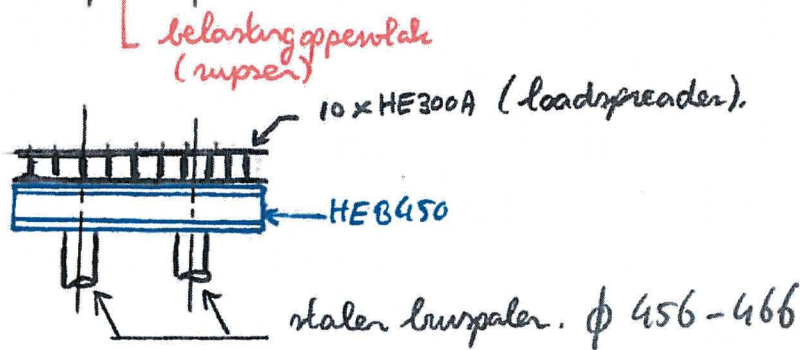 belastingoppervlak
(rupsen)
10 x HE300A (loadspreader).
HEB450
stalen buispalen. ϕ 456-466